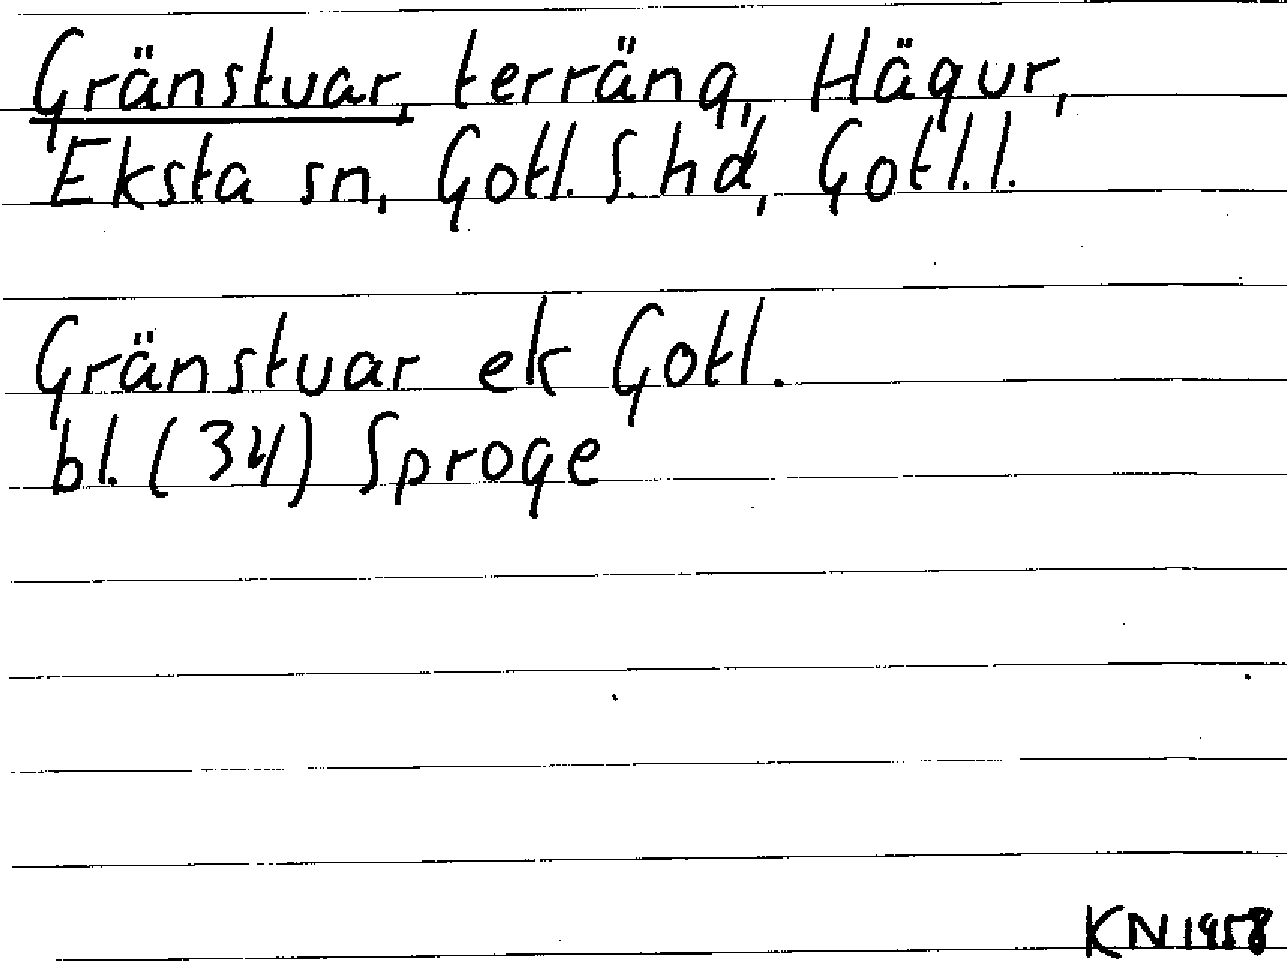 Gränstuar, terräng, Hägur,
Eksta sn, Gotl. S. hd, Gotl. l.
Gränstuar ek Gotl.
bl. (34) Sproge
KN 1958